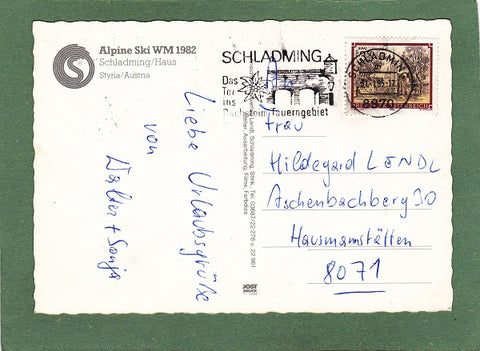 Alpine Ski WM 1982
Schladming/Haus
Styria/Austria
SCHLADMING
Das
Tor
ins
Dachstein-Tauerngebiet
SCHLADMING
8970
Liebe Urlaubsgrüße
von
Walter + Sonja
Frau
Hildegard LENDL
Aschenbachberg 30
Hausmannstätten
8071
JOST